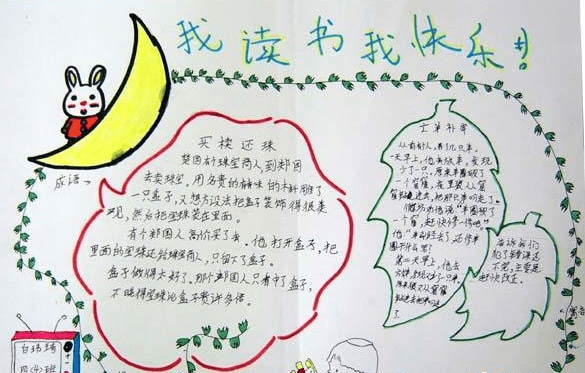 我读书我快乐!
成语
买椟还珠
楚国有个珠宝商人,到郑国
去卖珠宝。用名贵的
木料雕了
一只盒子,又想方设法把盒子装饰得很美
观,然后把宝珠装在里面。
有个郑国人高价买了去。他打开盒子,把
里面的宝珠还给珠宝商人,只留下了盒子。
盒子做得太好了。那个郑国人只看中了盒子,
不晓得宝珠比盒子贵许多倍。
亡羊补牢
从前有人,养几只羊。
一天早上,他去放羊,发现
少了一只。原来羊圈破了
一个窟窿,夜里狼从窟
窿钻进去,把那只羊叼走了。
街坊劝他说:“羊圈破了
一个窟窿,赶快修一修吧。”
他
还修羊
圈干什么呢?
第二天早上,他去
放羊
告诉我们
犯了错误还
不觉,主要是
赶快改正。
寓言
白
四
班